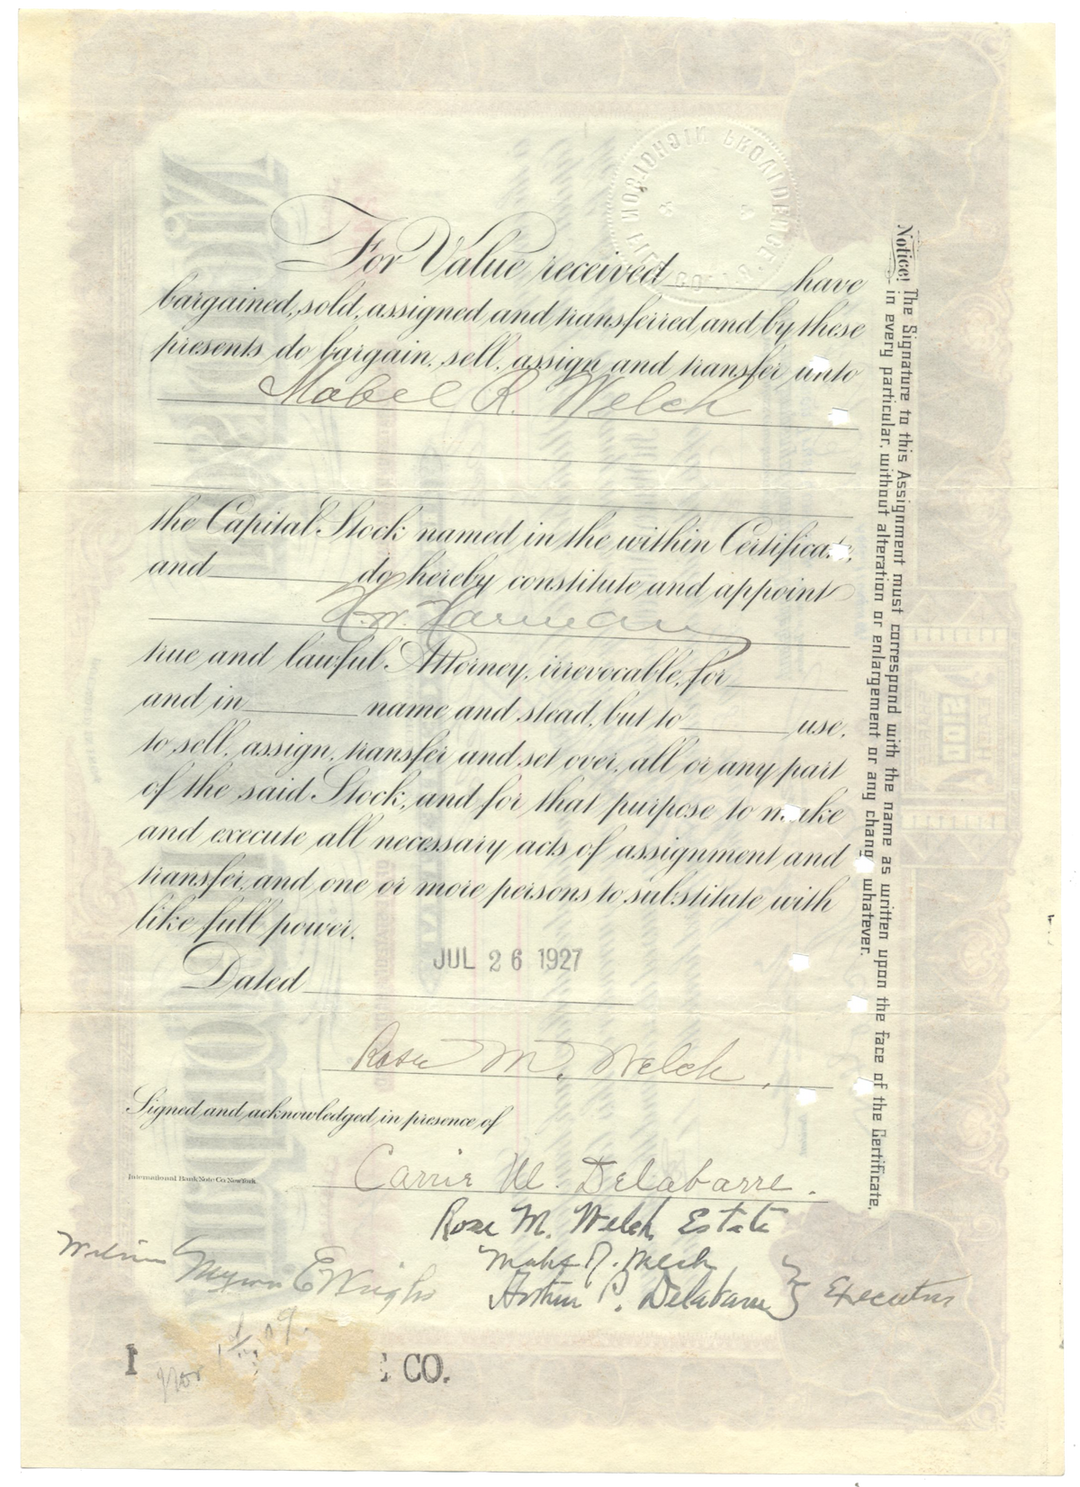 For Value received have
bargained, sold, assigned and transferred and by these
presents do bargain, sell, assign and transfer unto
Mabel R. Welch
the Capital Stock named in the within Certificate,
and do hereby constitute and appoint
true and lawful Attorney, irrevocable, for
and in name and stead, but to use,
to sell, assign, transfer and set over, all or any part
of the said Stock, and for that purpose to make
and execute all necessary acts of assignment and
transfer, and one or more persons to substitute with
like full power.
Dated JUL 26 1927
Rose M. Welch.
Signed and acknowledged in presence of
Carrie W. Delabarre.
International Bank Note Co New York
Rose M. Welch Estate
Arthur P. Delabarre } Executors
Myron E Wright
CO.
Notice! The Signature to this Assignment must correspond with the name as written upon the face of the Certificate,
in every particular, without alteration or enlargement or any chang whatever.